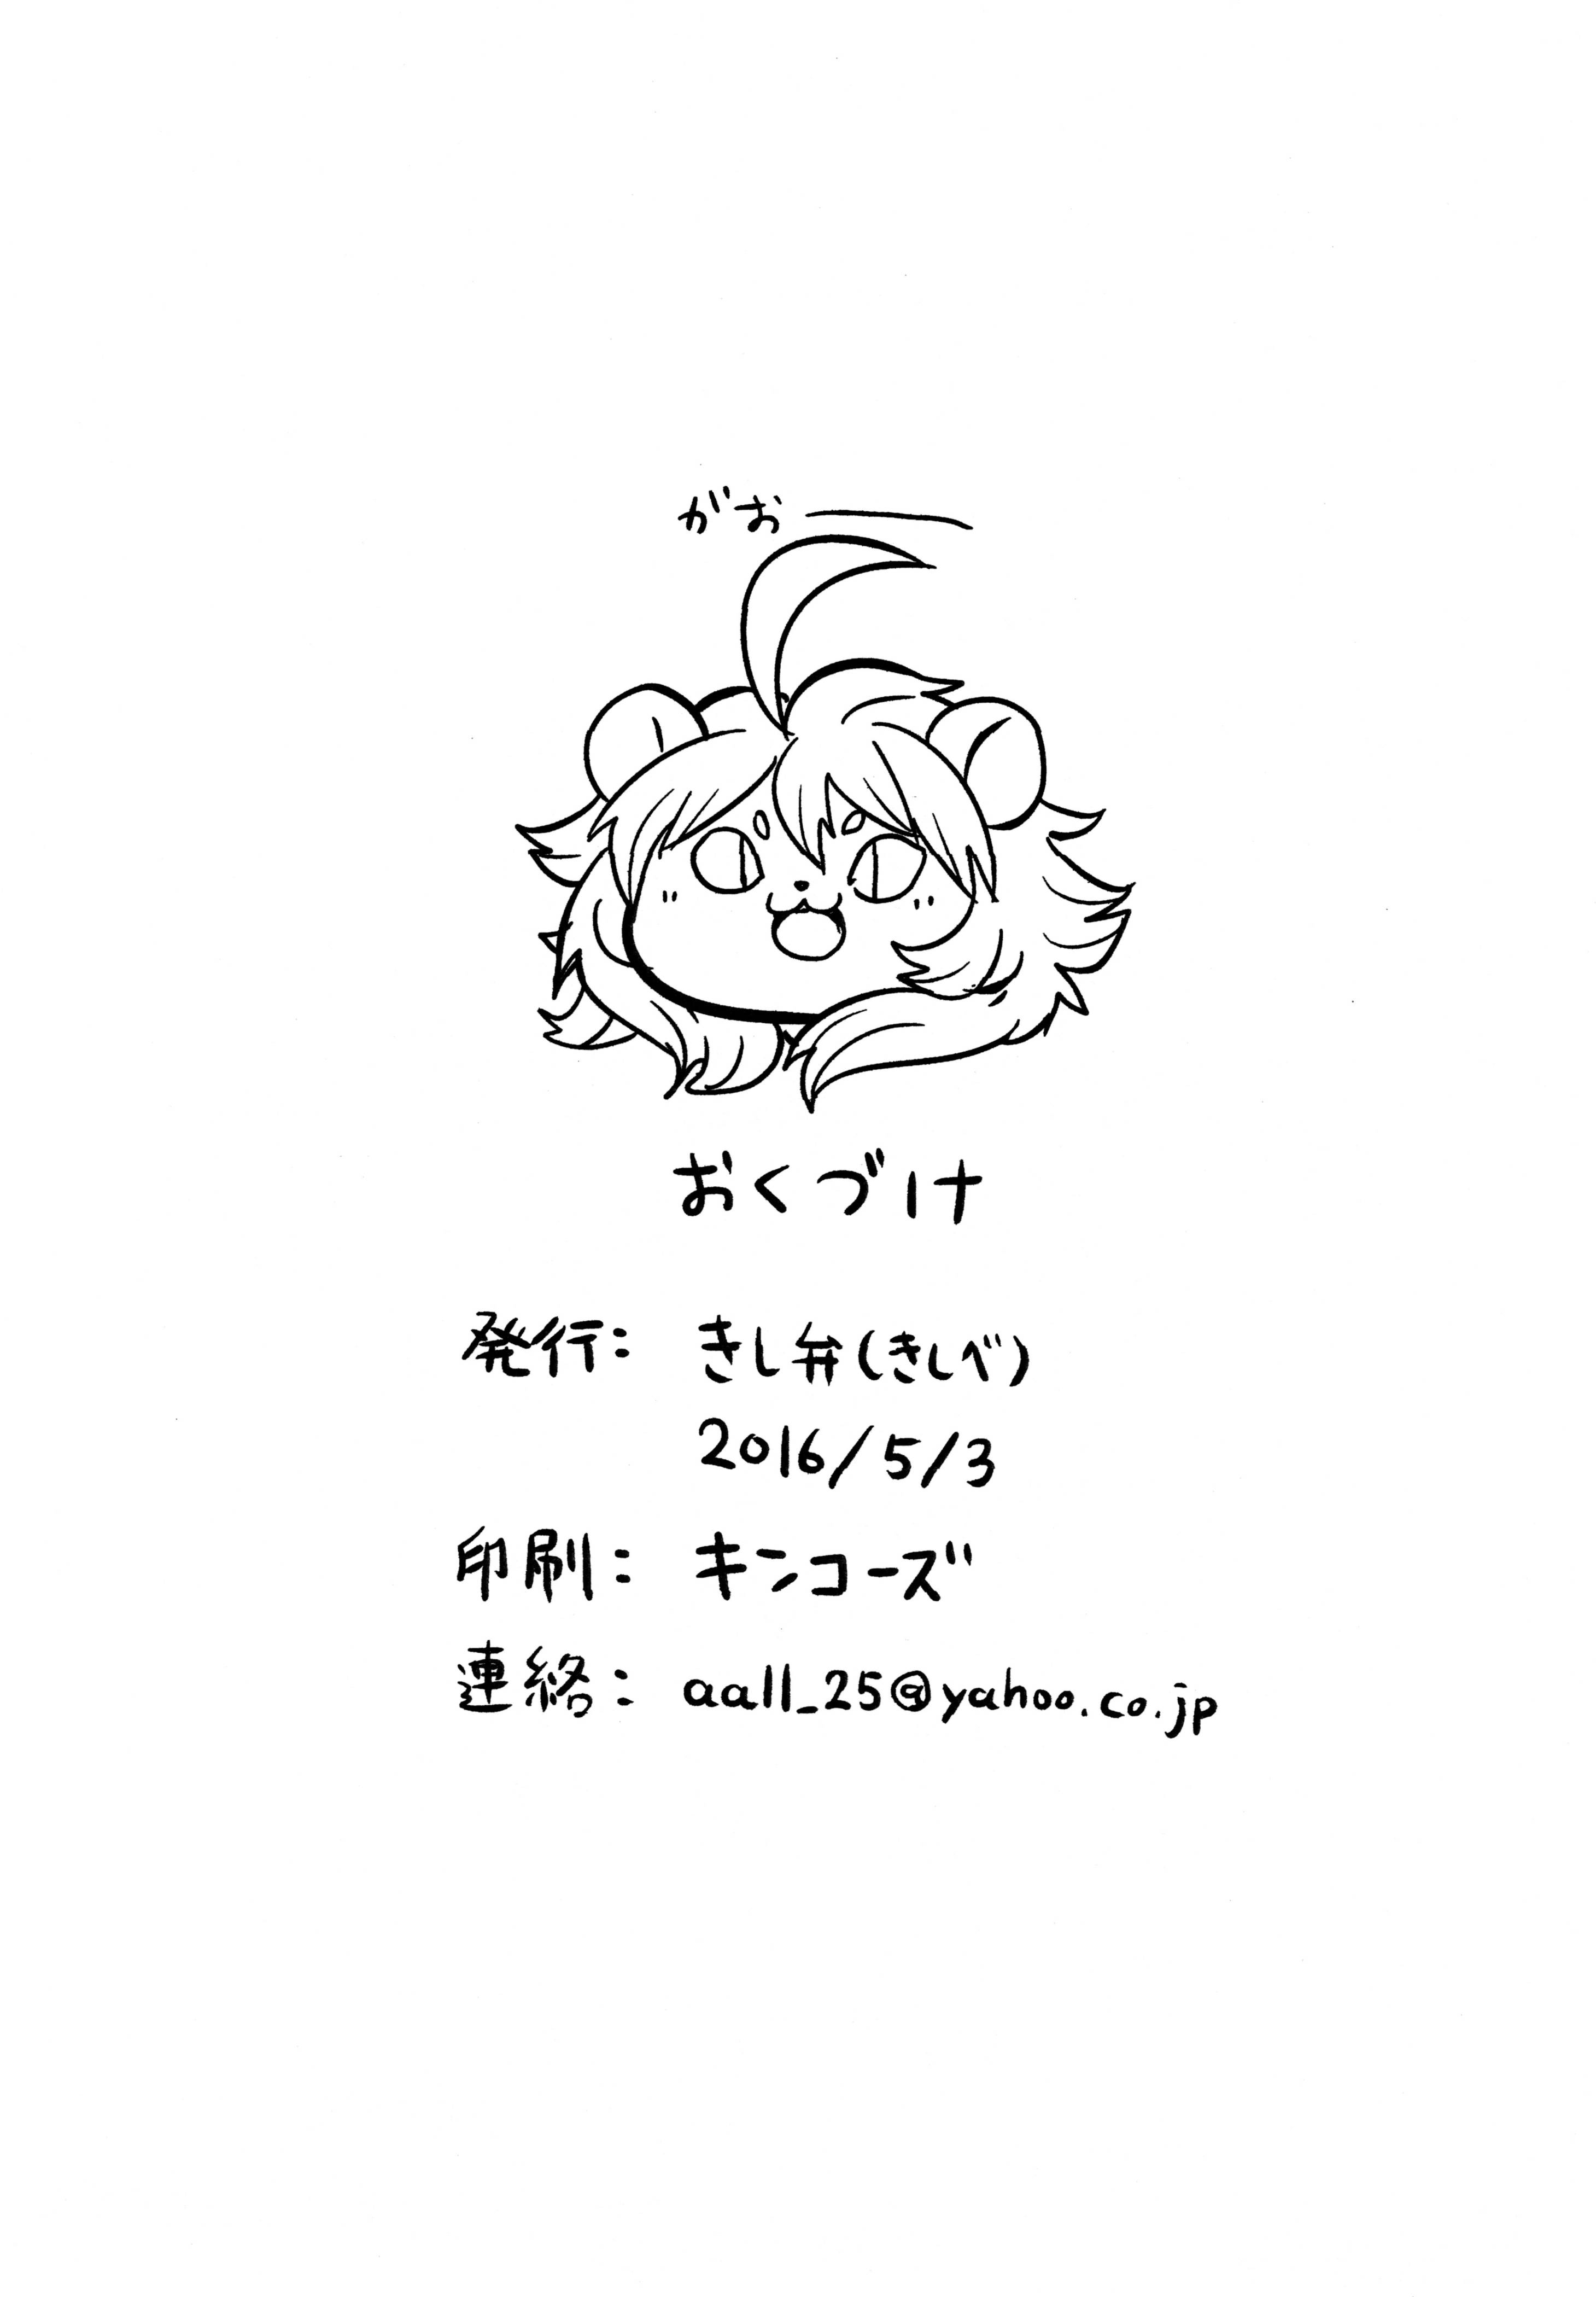 がおー
おくづけ
発行: きし弁(きしべ)
2016/5/3
印刷: キンコーズ
連絡: aall_25@yahoo.co.jp